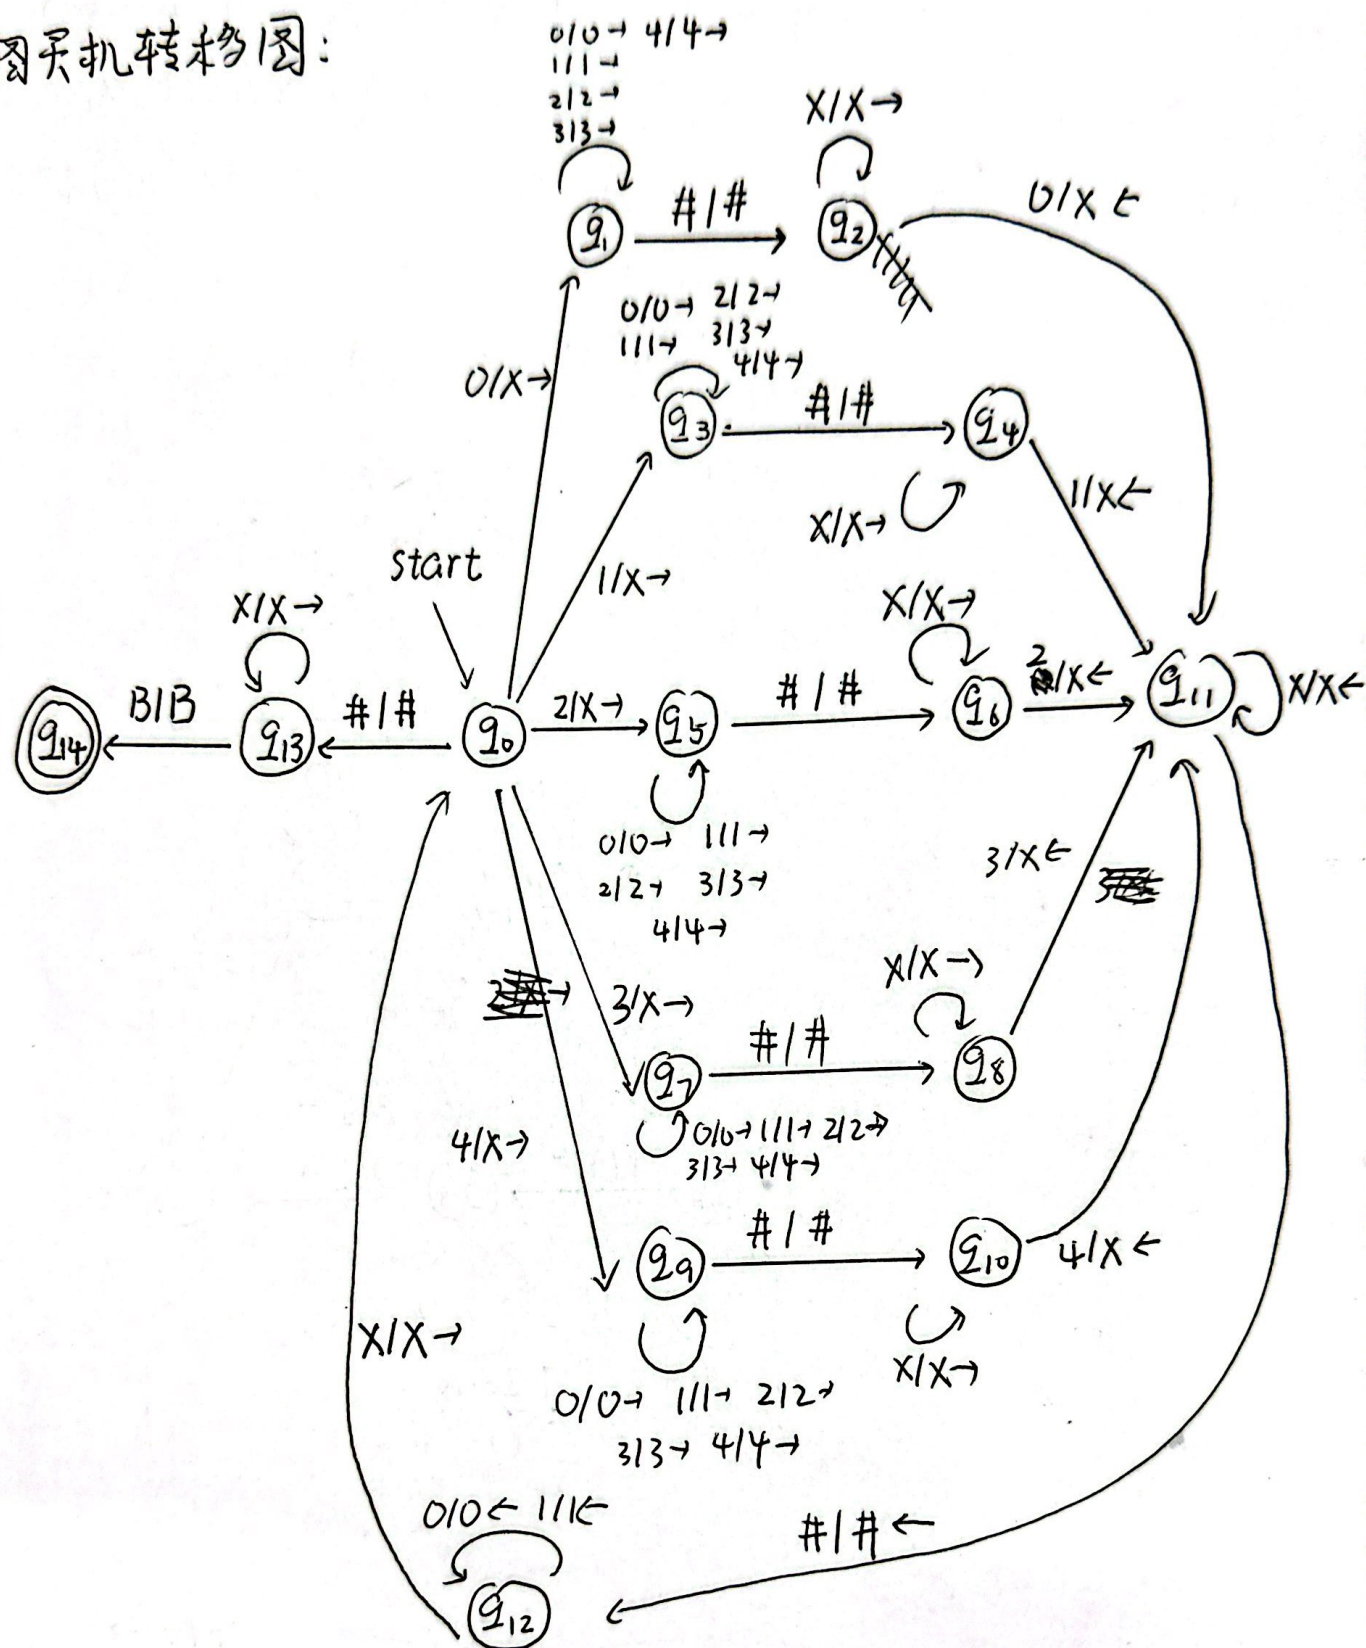 图灵机转移图:
0/0→ 4/4→
1/1→
2/2→
3/3→
X/X→
q1
#/#
q2
0/X←
0/0→ 2/2→
1/1→ 3/3→
4/4→
0/X→
q3
#/#
q4
X/X→
1/X←
start
1/X→
X/X→
X/X→
q14
B/B
q13
#/#
q0
2/X→
q5
#/#
q6
2/X←
q11
X/X←
0/0→ 1/1→
2/2→ 3/3→
4/4→
3/X←
X/X→
3/X→
q7
#/#
q8
0/0→ 1/1→ 2/2→
3/3→ 4/4→
4/X→
q9
#/#
q10
4/X←
X/X→
X/X→
0/0→ 1/1→ 2/2→
3/3→ 4/4→
0/0← 1/1←
#/#←
q12